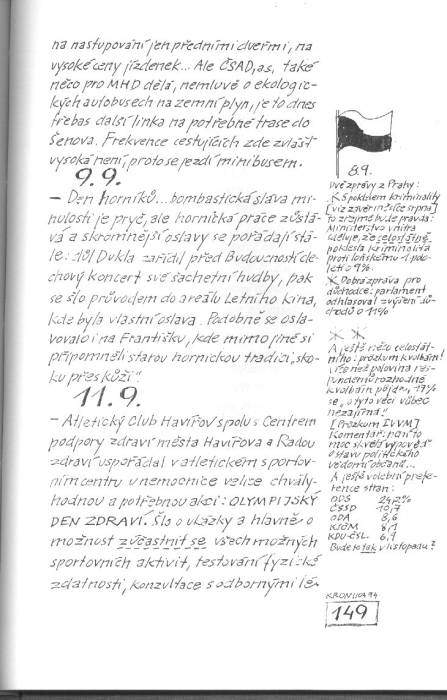 na nastupování jen předními dveřmi, na
vysoké ceny jízdenek... Ale ČSAD, as, také
něco pro MHD dělá, nemluvě o ekologic-
kých autobusech na zemní plyn, je to dnes
třebas další linka na potřebné trase do
Šenova. Frekvence cestujících zde zvlášť
vysoká není, proto se jezdí minibusem.
9.9.
– Den horníků... bombastická sláva mi-
nulosti je pryč, ale hornická práce zůstá-
vá a skromnější oslavy se pořádají stá-
le: důl Dukla zařídil před Budoucností de-
chový koncert své šachetní hudby, pak
se šlo průvodem do areálu Letního kina,
kde byla vlastní oslava. Podobně se osla-
vovalo i na Františku, kde mimo jiné si
připomněli starou hornickou tradici „sko-
ku přes kůži".
11.9.
– Atletický Club Havířov spolu s Centrem
podpory zdraví města Havířova a Radou
zdraví uspořádal v atletickém sportov-
ním centru u nemocnice velice chvály-
hodnou a potřebnou akci: OLYMPIJSKÝ
DEN ZDRAVÍ. Šlo o ukázky a hlavně o
možnost zúčastnit se všech možných
sportovních aktivit, testování fyzické
zdatnosti, konzultace s odbornými lé-
8.9.
Dvě zprávy z Prahy:
S poklesem kriminality
[viz závěr měsíce srpna]
to zřejmě bude pravda:
Ministerstvo vnitra
sděluje, že celostátně
poklesla kriminalita
proti loňskému 1. polo-
letí o 9%.
Dobrá zpráva pro
důchodce: parlament
odhlasoval zvýšení dů-
chodů o 11%
A ještě něco celostát-
ního: průzkum k volbám!
Více než polovina res-
pondentů rozhodně
k volbám půjde, 17%
se „o tyto věci vůbec
nezajímá"
[Průzkum IVVM]
Komentář: není to
moc skvělá výpověď
o stavu politického
vědomí občanů...
A ještě volební prefe-
rence stran:
ODS 24,2%
ČSSD 10,7
ODA 8,6
KSČM 8,1
KDU-ČSL 6,1
Bude to tak v listopadu?
KRONIKA 94
149